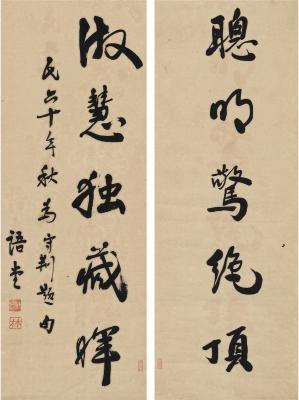 聰明驚絕頂
淑慧独藏暉
民六十年秋為守荆題句
語堂